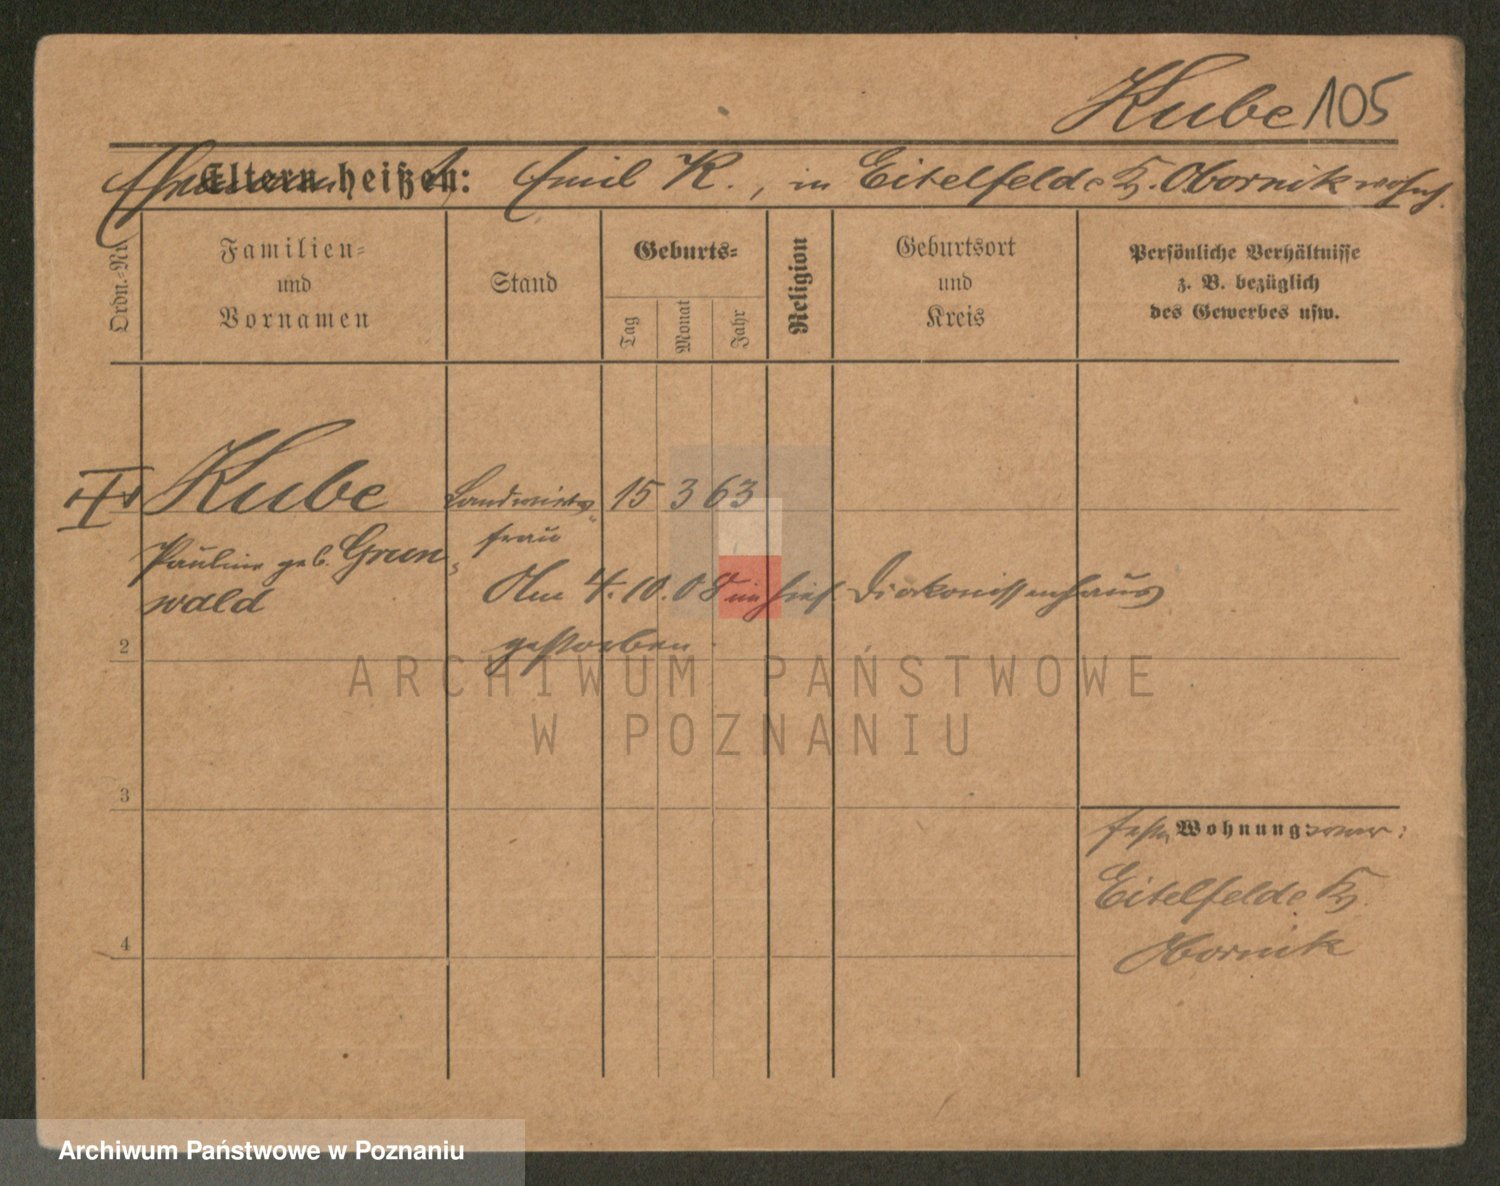 Kube 105
Ehemann
Eltern heißen: Emil K., in Eitelfelde Kr. Obornik wohnh.
Ordn.-Nr.
Familien-
und
Vornamen
Stand
Geburts-
Tag
Monat
Jahr
Religion
Geburtsort
und
Kreis
Persönliche Verhältnisse
z. B. bezüglich
des Gewerbes usw.
Kube
Landwirts-
15 3 63
frau
Pauline geb. Grun-
wald
Am 4.10.08 im hies. Diakonissenhaus
gestorben.
2
ARCHIWUM PAŃSTWOWE
W POZNANIU
3
Wohnung
Eitelfelde Kr.
Obornik
4
Archiwum Państwowe w Poznaniu